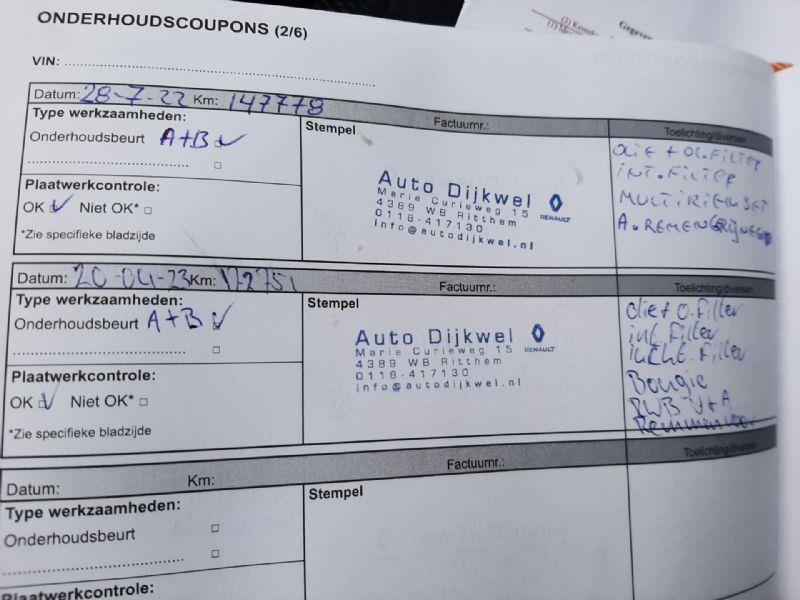 ONDERHOUDSCOUPONS (2/6)
VIN:
Datum: 28-7-22 Km: 147778
Type werkzaamheden:
Onderhoudsbeurt A+B
Plaatwerkcontrole:
OK Niet OK*
*Zie specifieke bladzijde
Stempel
Factuurnr.:
Auto Dijkwel
Marie Curieweg 15
4389 WB Ritthem
0118-417130
info@autodijkwel.nl
RENAULT
Toelichting/diversen
OLIE + OL.FILTER
INT.FILTER
MULTIRIEMSET
A.REMEN
Datum: 20-04-23 Km: 172751
Type werkzaamheden:
Onderhoudsbeurt A+B
Plaatwerkcontrole:
OK Niet OK*
*Zie specifieke bladzijde
Stempel
Factuurnr.:
Auto Dijkwel
Marie Curieweg 15
4389 WB Ritthem
0118-417130
info@autodijkwel.nl
RENAULT
Toelichting/diversen
olie + O.Filter
int. Filter
lucht. Filter
Bougie
RWB V+A
Remmen
Datum: Km:
Type werkzaamheden:
Onderhoudsbeurt
Plaatwerkcontrole:
Stempel
Factuurnr.:
Toelichting/diversen